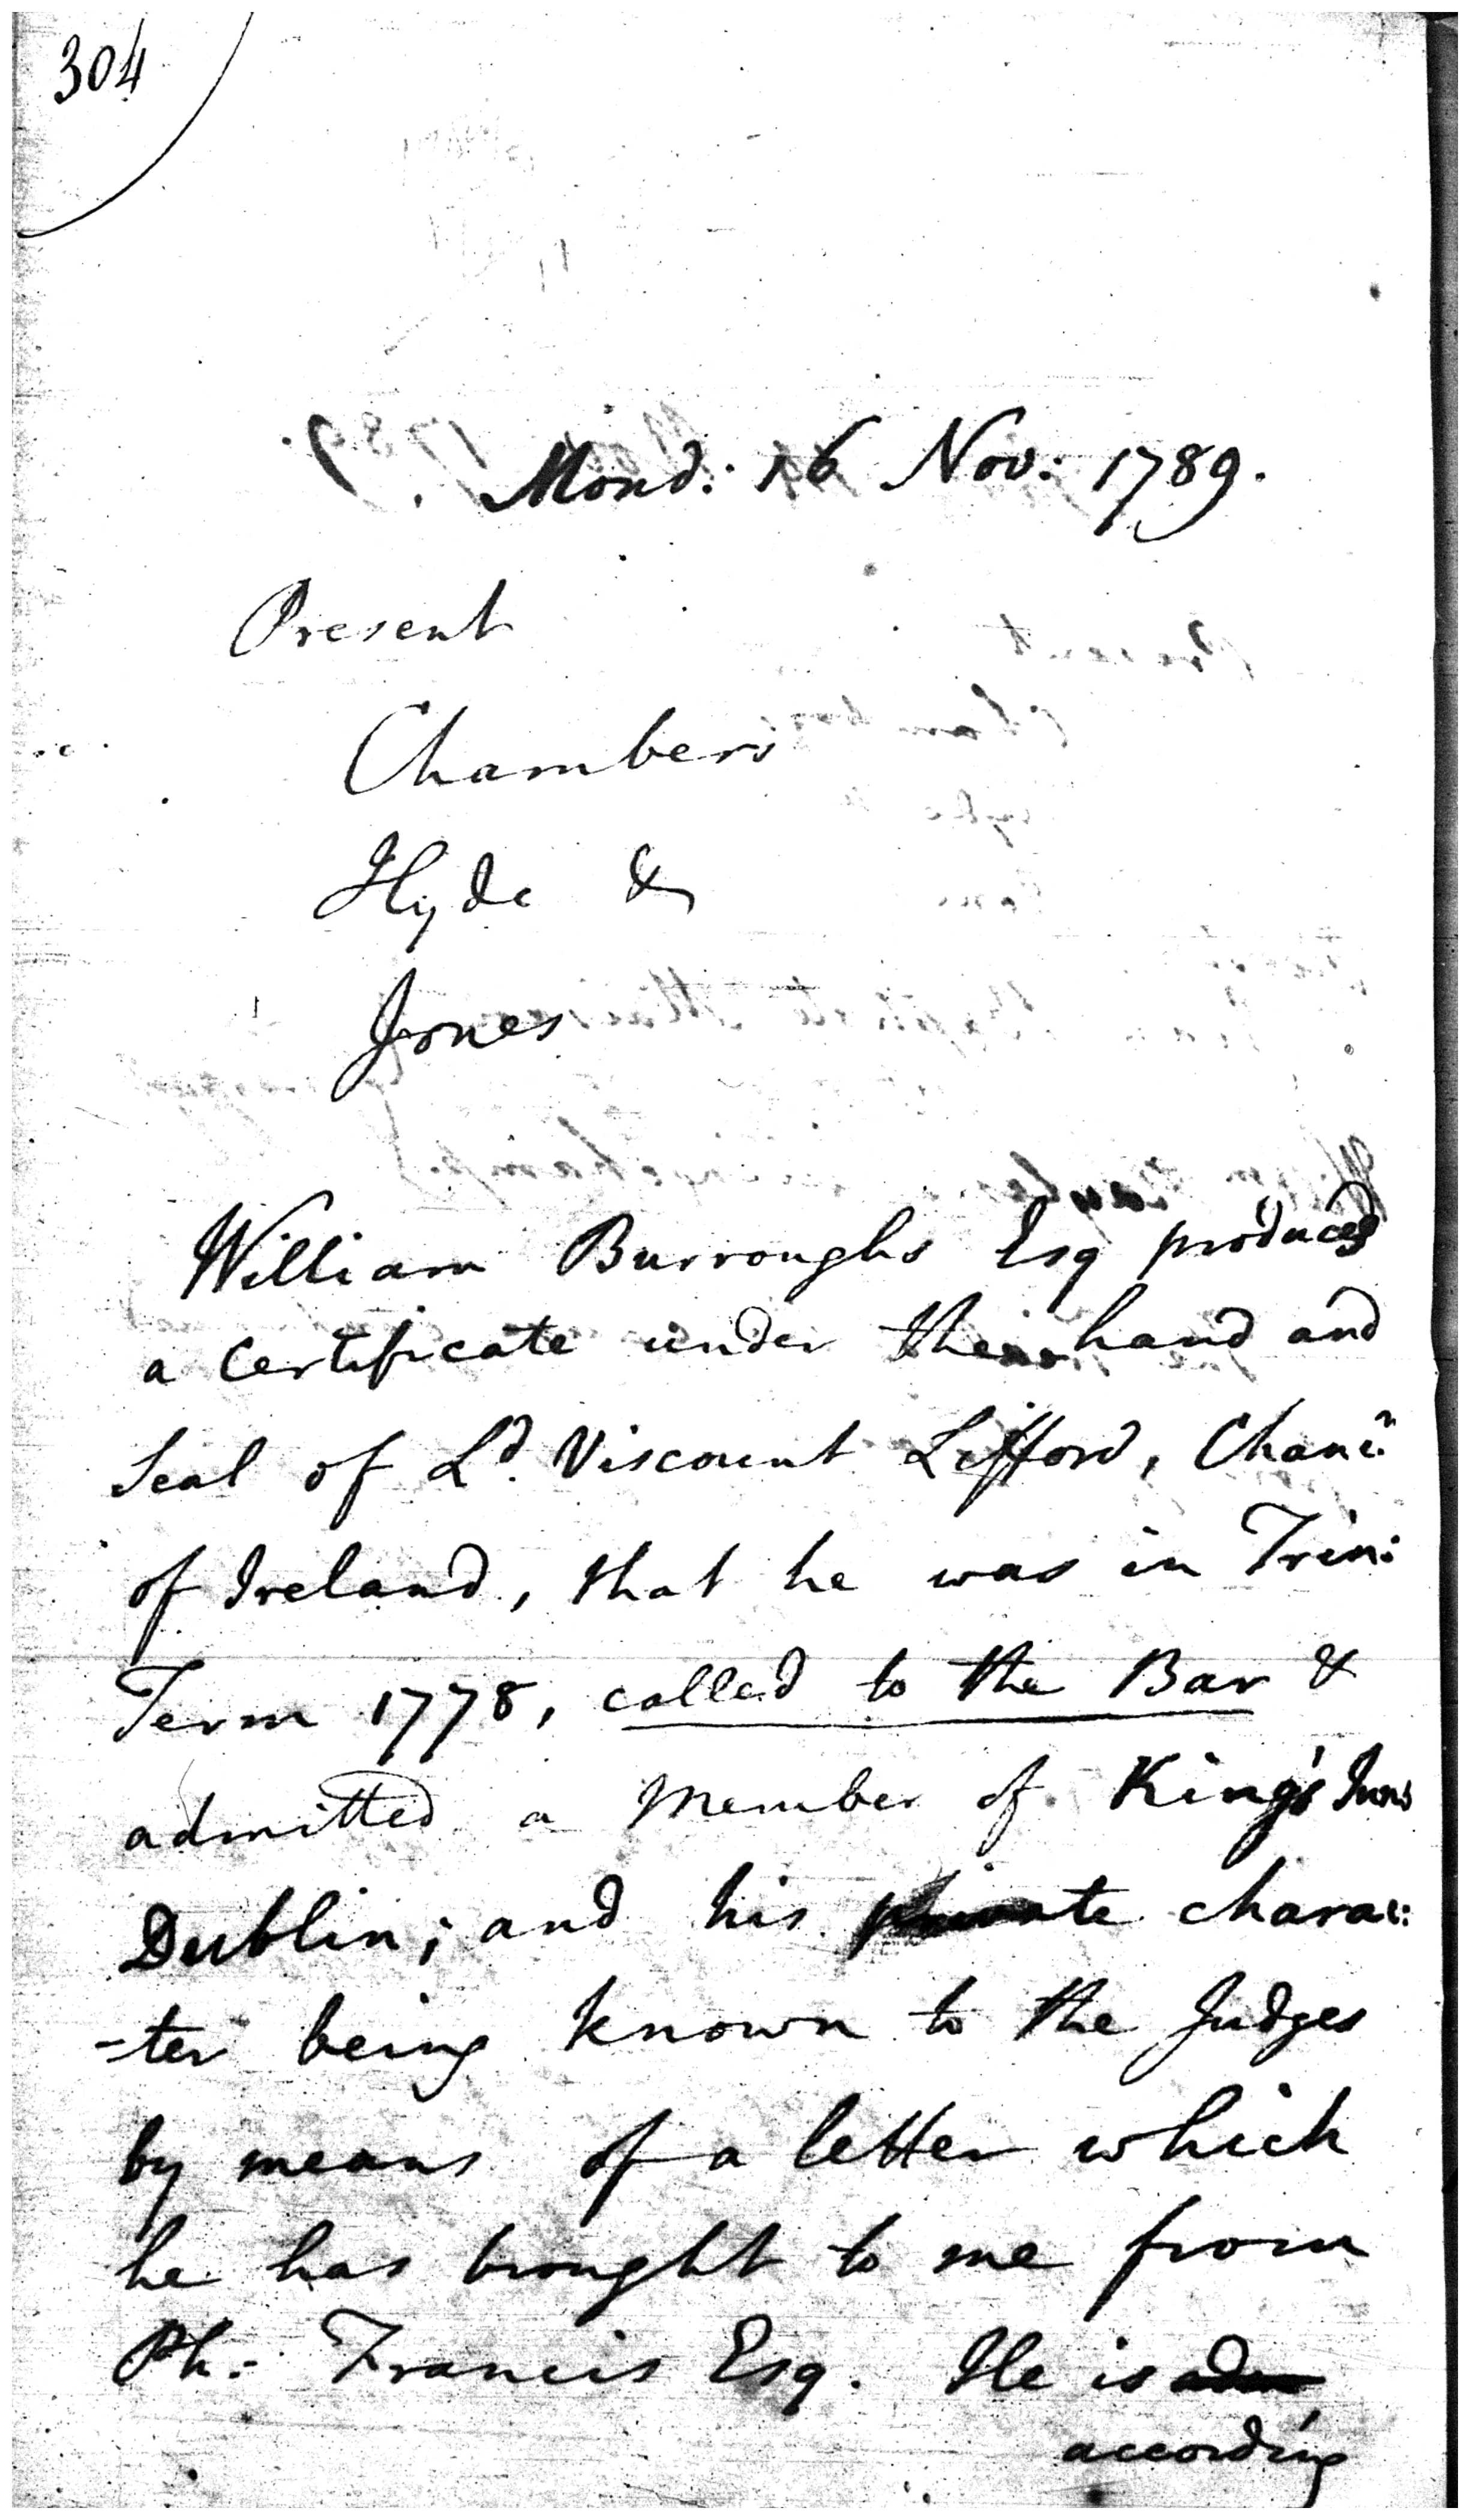 304
Mond: 16 Nov: 1789.
Present
Chambers
Hyde &
Jones
William Burroughs Esq produced
a certificate under the hand and
seal of Ld. Viscount Lifford, Chanc.r
of Ireland, that he was in Trin:
Term 1778, called to the Bar &
admitted a Member of King's Inns
Dublin; and his private charac:
=ter being known to the Judges
by means of a letter which
he has brought to me from
Ph: Francis Esq. He is
according